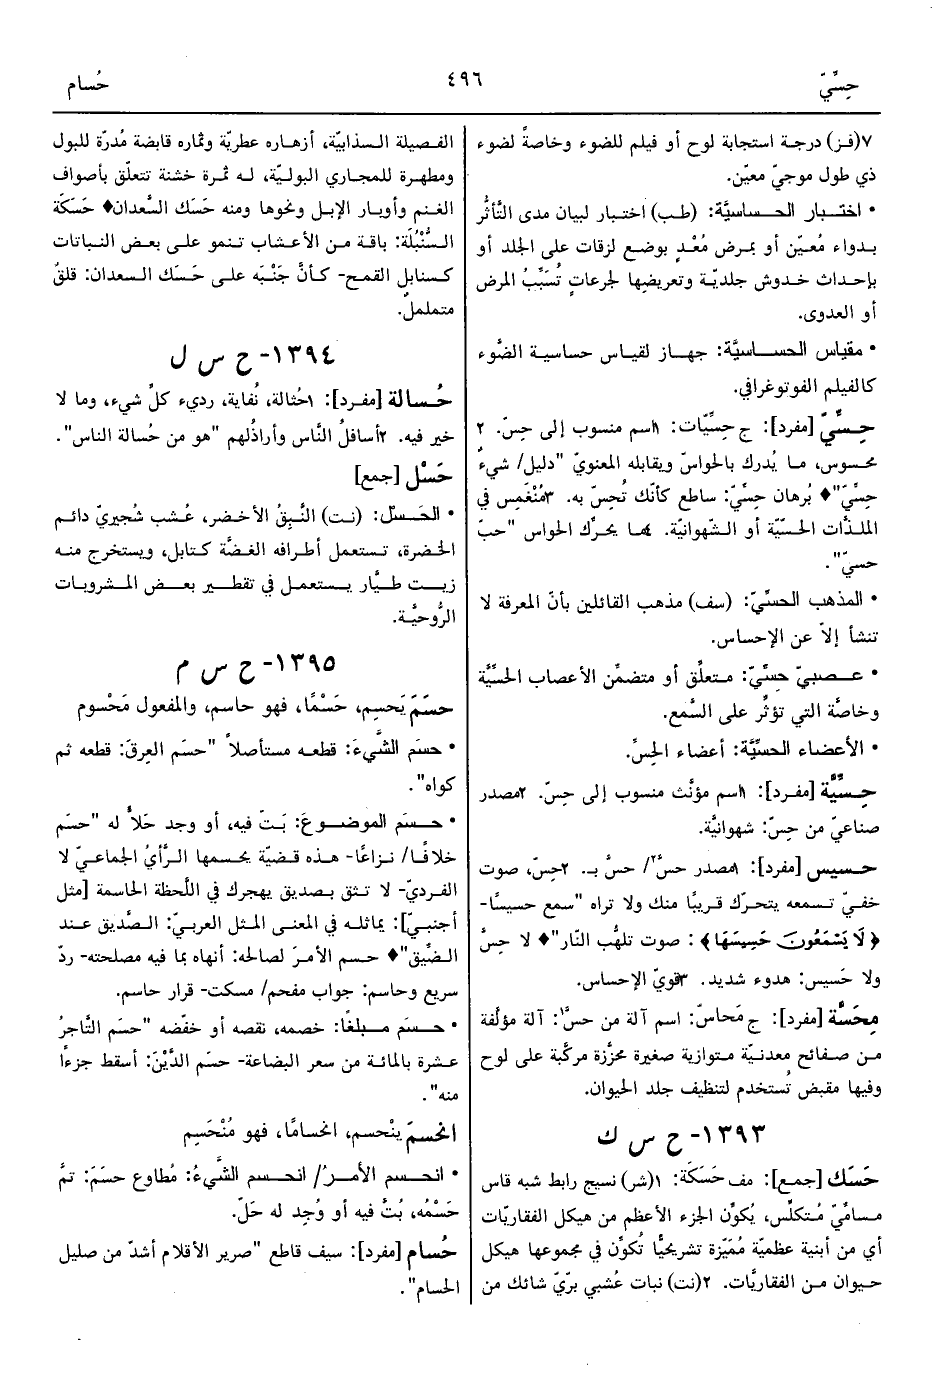 حِسِّيّ
٤٩٦
حُسام
٧(فز) درجة استجابة لوح أو فيلم للضوء وخاصةً لضوء
ذي طول موجيّ معيّن.
• اختبار الحساسيَّة: (طب) اختبار لبيان مدى التَّأثُّر
بدواء مُعيّن أو بمرض مُعْدٍ بوضع لزقات على الجلد أو
بإحداث خدوش جلديّة وتعريضها لجرعاتٍ تُسَبِّبُ المرض
أو العدوى.
• مقياس الحساسيَّة: جهاز لقياس حساسية الضَّوء
كالفيلم الفوتوغرافي.
حِسِّيّ [مفرد]: ج حِسِّيّات: ١اسم منسوب إلى حِسّ. ٢
محسوس، ما يُدرك بالحواسّ ويقابله المعنويّ "دليل/ شيءٌ
حِسِّيّ"♦ بُرهان حِسِّيّ: ساطع كأنّك تُحِسّ به. ٣مُنْغَمِس في
الملذّات الحسّيّة أو الشّهوانيّة. ٤ما يحرِّك الحواس "حبّ
حسيّ".
• المذهب الحسِّيّ: (سف) مذهب القائلين بأنّ المعرفة لا
تنشأ إلاّ عن الإحساس.
• عصبيّ حِسِّيّ: متعلِّق أو متضمِّن الأعصاب الحسِّيَّة
وخاصَّة التي تؤثِّر على السَّمع.
• الأعضاء الحسِّيَّة: أعضاء الحِسّ.
حِسِّيَّة [مفرد]: ١اسم مؤنَّث منسوب إلى حِسّ. ٢مصدر
صناعيّ من حِسّ: شهوانيَّة.
حسيس [مفرد]: ١مصدر حسَّ٢/ حسَّ بـ. ٢حِسّ، صوت
خفيّ تسمعه يتحرّك قريبًا منك ولا تراه "سمع حسيسًا-
﴿لَا يَسْمَعُونَ حَسِيسَهَا﴾: صوت تلهّب النّار"♦ لا حِسَّ
ولا حَسيس: هدوء شديد. ٣قويّ الإحساس.
مِحَسَّة [مفرد]: ج مَحاسّ: اسم آلة من حسَّ١: آلة مؤلَّفة
من صفائح معدنيّة متوازية صغيرة محزّزة مركّبة على لوح
وفيها مقبض تُستخدم لتنظيف جلد الحيوان.
١٣٩٣- ح س ك
حَسَك [جمع]: مف حَسَكَة: ١(شر) نسيج رابط شبه قاس
مساميّ مُتكلّس، يُكوِّن الجزء الأعظم من هيكل الفقاريّات
أي من أبنية عظميّة مُمَيَّزة تشريحيًّا تُكوِّن في مجموعها هيكل
حيوان من الفقاريَّات. ٢(نت) نبات عُشبي برّيّ شائك من
الفصيلة السذابيّة، أزهاره عطريّة وثماره قابضة مُدرّة للبول
ومطهرة للمجاري البوليّة، له ثمرة خشنة تتعلّق بأصواف
الغنم وأوبار الإبل ونحوها ومنه حَسَك السَّعدان♦ حَسَكَة
السُّنْبُلَة: باقة من الأعشاب تنمو على بعض النباتات
كسنابل القمح- كأنَّ جَنْبَه على حَسَك السعدان: قلقٌ
متململٌ.
١٣٩٤- ح س ل
حُسالة [مفرد]: ١حُثالة، نُفاية، رديء كلّ شيء، وما لا
خير فيه. ٢أسافلُ النَّاس وأراذلُهم "هو من حُسالة الناس".
حَسْل [جمع]
• الحَسل: (نت) النَّبِقُ الأخضر، عُشب شُجيريّ دائم
الخضرة، تستعمل أطرافه الغضّة كتابل، ويستخرج منه
زيت طيَّار يستعمل في تقطير بعض المشروبات
الرُّوحيَّة.
١٣٩٥- ح س م
حسَمَ يَحسِم، حَسْمًا، فهو حاسم، والمفعول مَحْسوم
• حسَم الشَّيءَ: قطعه مستأصلاً "حسَم العِرقَ: قطعه ثم
كواه".
• حسَم الموضوعَ: بَتّ فيه، أو وجد حَلاًّ له "حسَم
خلافًا/ نزاعًا- هذه قضيّة يحسمها الرَّأيُ الجماعيّ لا
الفرديّ- لا تثق بصديق يهجرك في اللّحظة الحاسمة [مثل
أجنبيّ]: يماثله في المعنى المثل العربيّ: الصَّديق عند
الضِّيق"♦ حسم الأمرَ لصالحه: أنهاه بما فيه مصلحته- ردّ
سريع وحاسم: جواب مفحم/ مسكت- قرار حاسم.
• حسَم مبلغًا: خصمه، نقصه أو خفّضه "حسَم التَّاجرُ
عشرة بالمائة من سعر البضاعة- حسَم الدَّيْنَ: أسقط جزءًا
منه".
انحسمَ ينْحسم، انحسامًا، فهو مُنْحَسِم
• انحسم الأمرُ/ انحسم الشَّيءُ: مُطاوع حسَمَ: تمَّ
حَسْمُه، بُتَّ فيه أو وُجِد له حَلّ.
حُسام [مفرد]: سيف قاطع "صرير الأقلام أشدّ من صليل
الحسام".